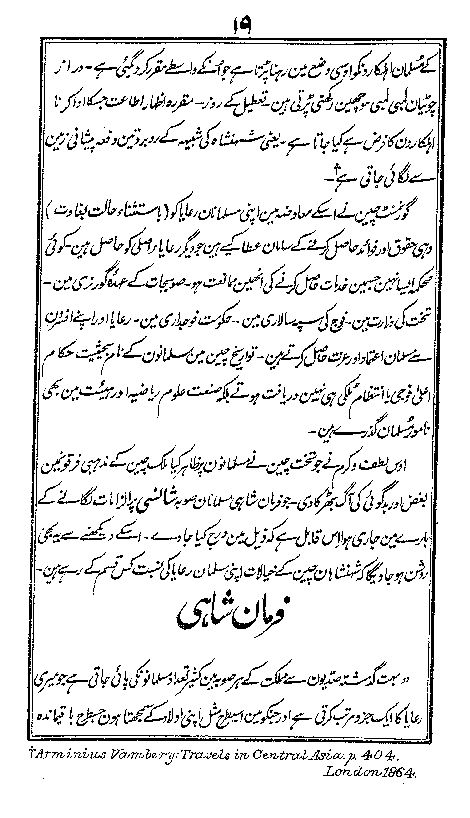 ۱۹
کے مسلمان اہلکارونکو اوسی وضع مین رہنا پڑتا ہے جو اُنکے واسطے مقرر کر دی گئی ہے - دراز
چوٹیان لمبی لمبی موچھین رکھنی پڑتی ہین - تعطیل کے روز - مقررہ اظہار اطاعت جسکا ادا کرنا
اہلکارون کا فرض ہے کیا جاتا ہے - یعنی شہنشاہ کی شبیہ کے روبرو تین دفعہ پیشانی زمین
سے لگائی جاتی ہے†-
گورنمنٹ چین نے اسکے معاوضہ مین اپنی مسلمانان رعایا کو (باستثناء حالت بغاوت)
وہی حقوق اور فوائد حاصل کرنے کے سامان عطا کیے ہین جو دیگر رعایاء اصلی کو حاصل ہین - کوئی
محکمہ ایسا نہین جسمین خدمات حاصل کرنے کی انھین ممانعت ہو - صوبجات کے عہدۂ گورنری مین -
تخت کی وزارت مین - فوج کی سپہ سالاری مین - حکومت فوجداری مین - رعایا اور اپنے افسرون
سے مسلمان اعتماد اور عزت حاصل کرتے ہین - تواریخ چین مین مسلمانون کے نام بحیثیت حکام
اعلیٰ فوجی یا انتظام ملکی ہی نہین دریافت ہوتے بلکہ صنعت علوم ریاضیہ اور ہیئت مین بھی
نامور مسلمان گذرے ہین -
اوس لطف و کرم نے جو تخت چین نے مسلمانون پر ظاہر کیا ملک چین کے مذہبی فرقونمین
بغض اور بدگوئی کی آگ بھڑکا دی - جو فرمان شاہی مسلمانان صوبہ شانسی پر الزامات لگانے کے
بارے مین جاری ہوا اس قابل ہے کہ ذیل مین درج کیا جاوے - اسکے دیکھنے سے یہ بھی
روشن ہو جاویگا کہ شہنشاہان چین کے خیالات اپنی مسلمان رعایا کی نسبت کس قسم کے رہے ہین -
فرمان شاہی
"بہت گذشتہ صدیون سے مملکت کے ہر صوبہ مین کثیر تعداد مسلمانونکی پائی جاتی ہے جو میری
رعایا کا ایک جزو مرتب کرتی ہے اور جنکو مین اسیطرح مثل اپنی اولاد کے سمجھتا ہون جسطرح باقیماندہ
†Arminius Vambery: Travels in Central Asia. p. 404.
London 1864.